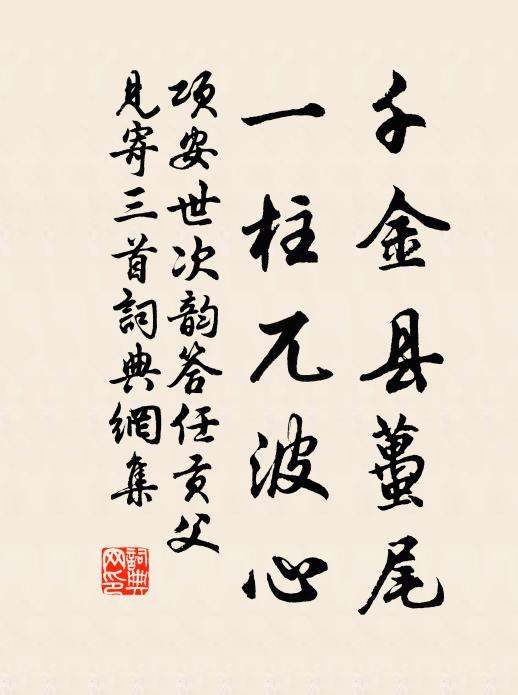 千金县虿尾
一柱兀波心
项安世次韵答任贡父
见寄三首詞典網集
詞典网印